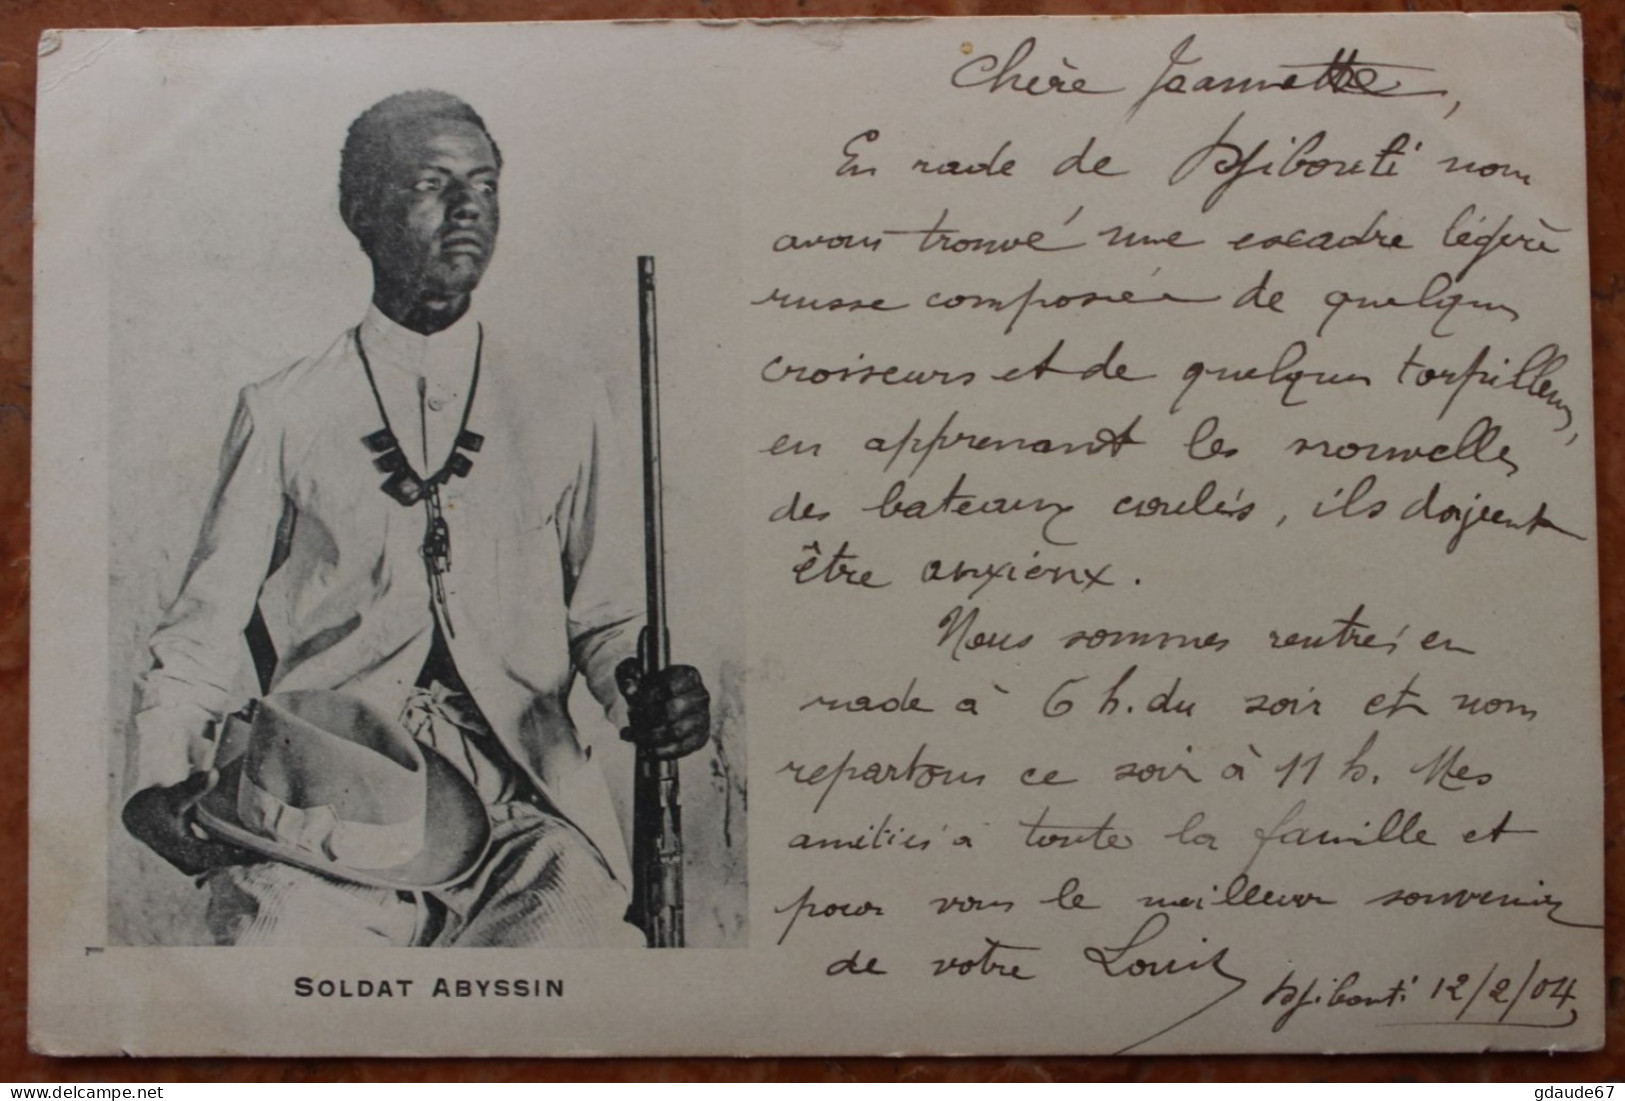 Chère Jeannette,
En rade de Djibouti nous
avons trouvé une escadre légère
russe composée de quelques
croiseurs et de quelques torpilleurs,
en apprenant les nouvelles
des bateaux coulés, ils doivent
être anxieux.
Nous sommes rentrés en
rade à 6 h. du soir et nous
repartons ce soir à 11 h. Mes
amitiés à toute la famille et
pour vous le meilleur souvenir
de votre Louis
Djibouti 12/2/04
1
SOLDAT ABYSSIN
Delcampe.net
gdaude67